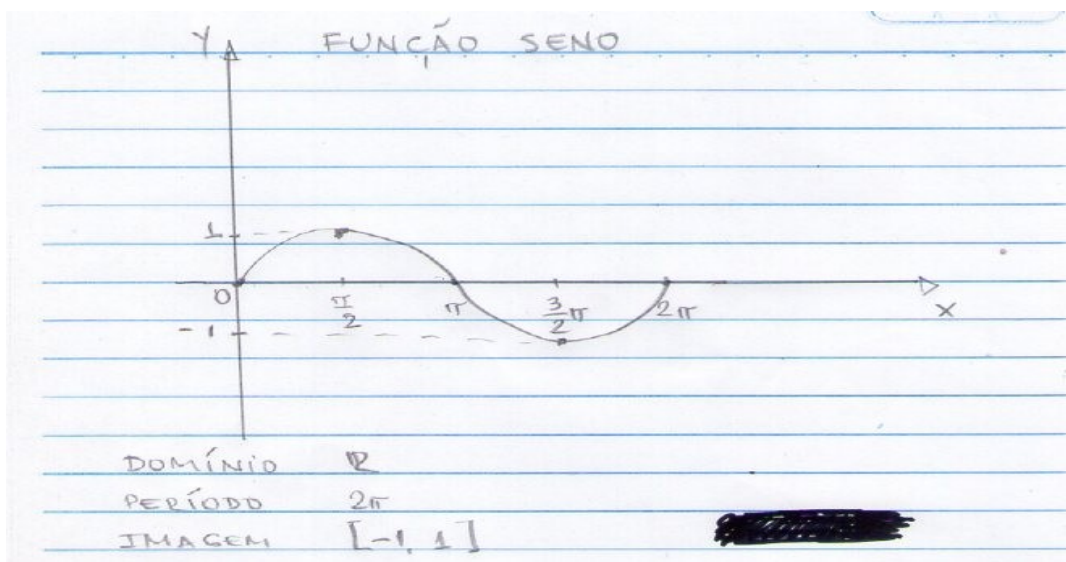 Y FUNÇÃO SENO
1
0 π/2 π 3/2 π 2π
X
-1
DOMÍNIO ℝ
PERÍODO 2π
IMAGEM [-1, 1]